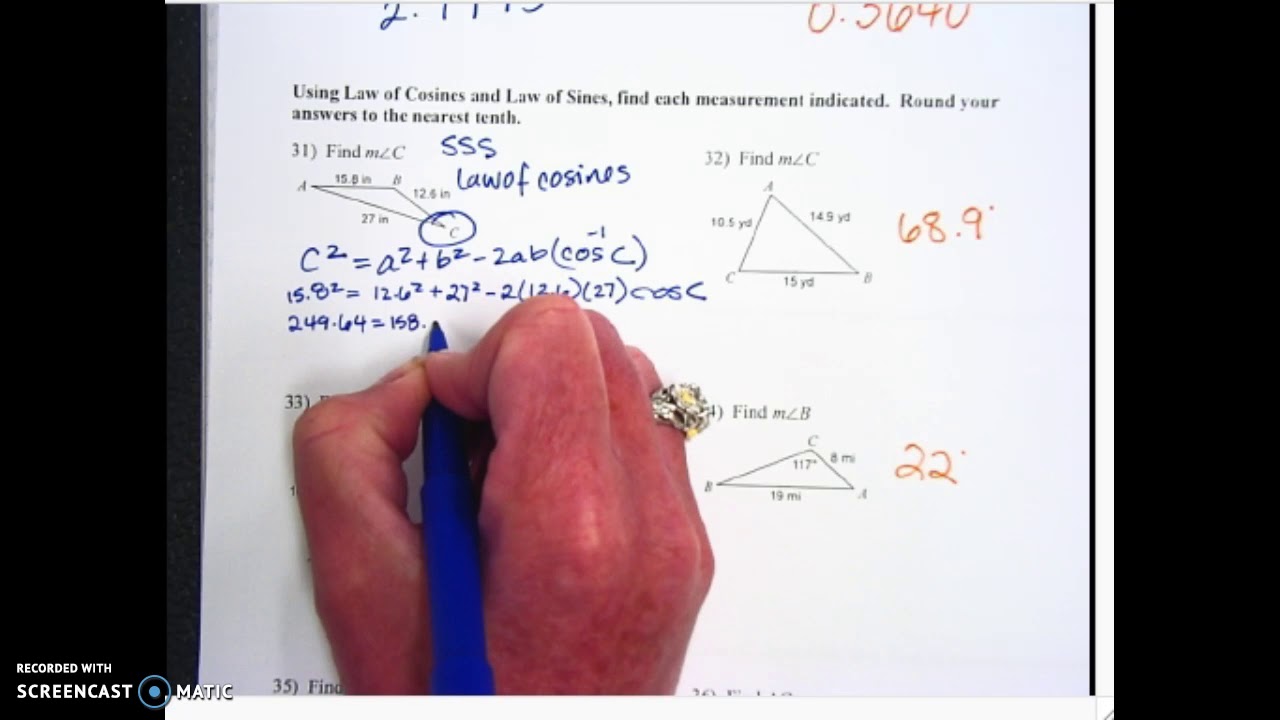 Using Law of Cosines and Law of Sines, find each measurement indicated. Round your
answers to the nearest tenth.
31) Find m∠C
SSS
Law of cosines
A
15.8 in
B
12.6 in
27 in
C
C² = a² + b² - 2ab(cos⁻¹C)
15.8² = 12.6² + 27² - 2(12.6)(27) cos C
249.64 = 158.
32) Find m∠C
A
10.5 yd
14.9 yd
C
15 yd
B
68.9°
33)
Find m∠B
C
117°
8 mi
B
19 mi
A
22°
35) Find
RECORDED WITH
SCREENCAST MATIC